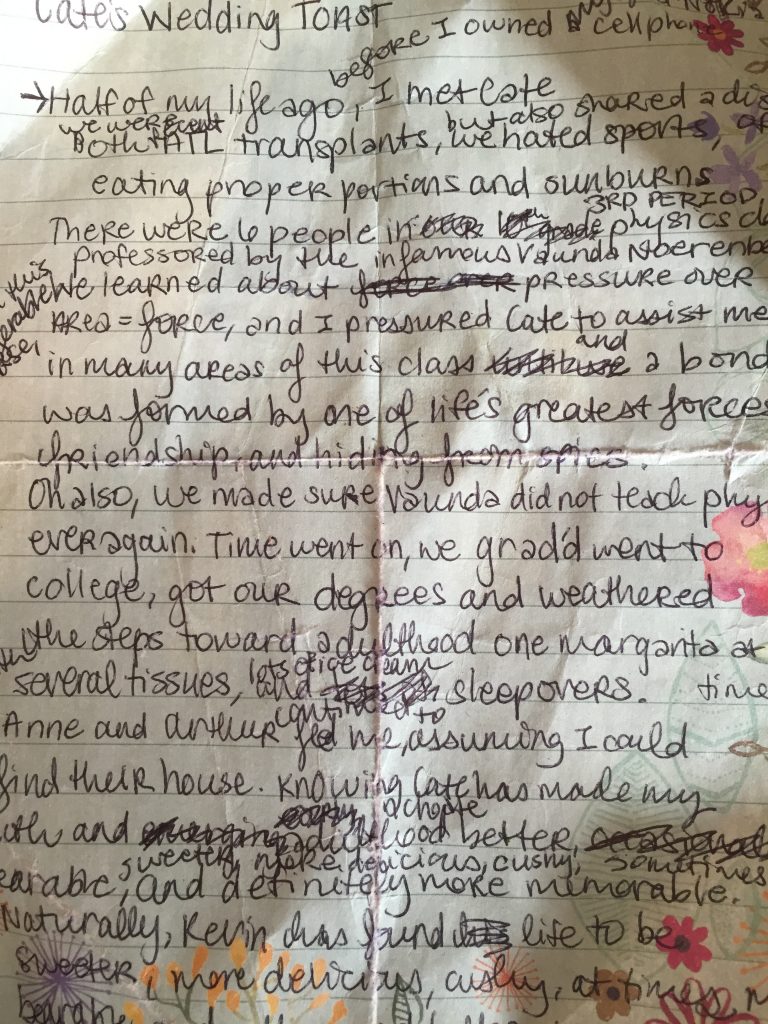 Cate's Wedding Toast
before I owned my cellphone
→ Half of my life ago, I met Cate
we were but also shared a dis
Both transplants, we hated sports, of
eating proper portions and sunburns
3RD PERIOD
There were 6 people in physics cl
professored by the infamous Vaunda
We learned about pressure over
Area = force, and I pressured Cate to assist me
and
in many areas of this class a bond
was formed by one of life's greatest forces
friendship, and hiding from
Oh also, we made sure Vaunda did not teach phy
ever again. Time went on, we grad'd went to
college, got our degrees and weathered
the steps toward adulthood one margarita at
lots of ice cream
several tissues, and sleepovers. time
continued to
Anne and Arthur fed me, assuming I could
find their house. Knowing Cate has made my
uth and adulthood better,
sweeter, more delicious, cushy, sometimes
earable, and definitely more memorable.
Naturally, Kevin has found life to be
sweeter, more delicious, cushy, at times m
bearable